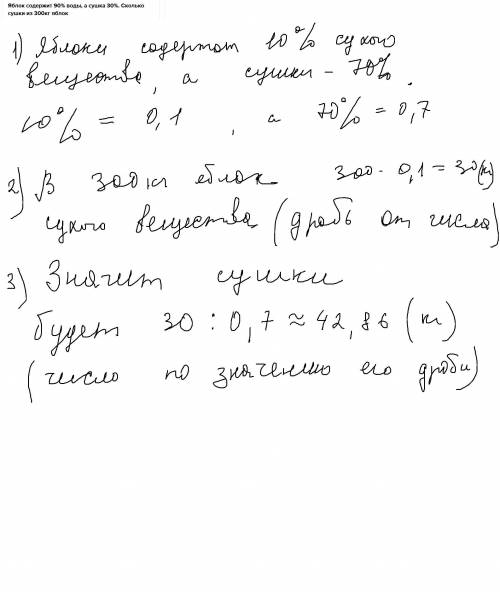 Яблок содержит 90% воды, а сушка 30%. Сколько
сушки из 300кг яблок
1) Яблоки содержат 10% сухого
вещества, а сушки - 70%.
10% = 0,1, а 70% = 0,7
2) В 300кг яблок 300 · 0,1 = 30(кг)
сухого вещества (дробь от числа)
3) Значит сушки
будет 30 : 0,7 ≈ 42,86 (кг)
(число по значению его дроби)